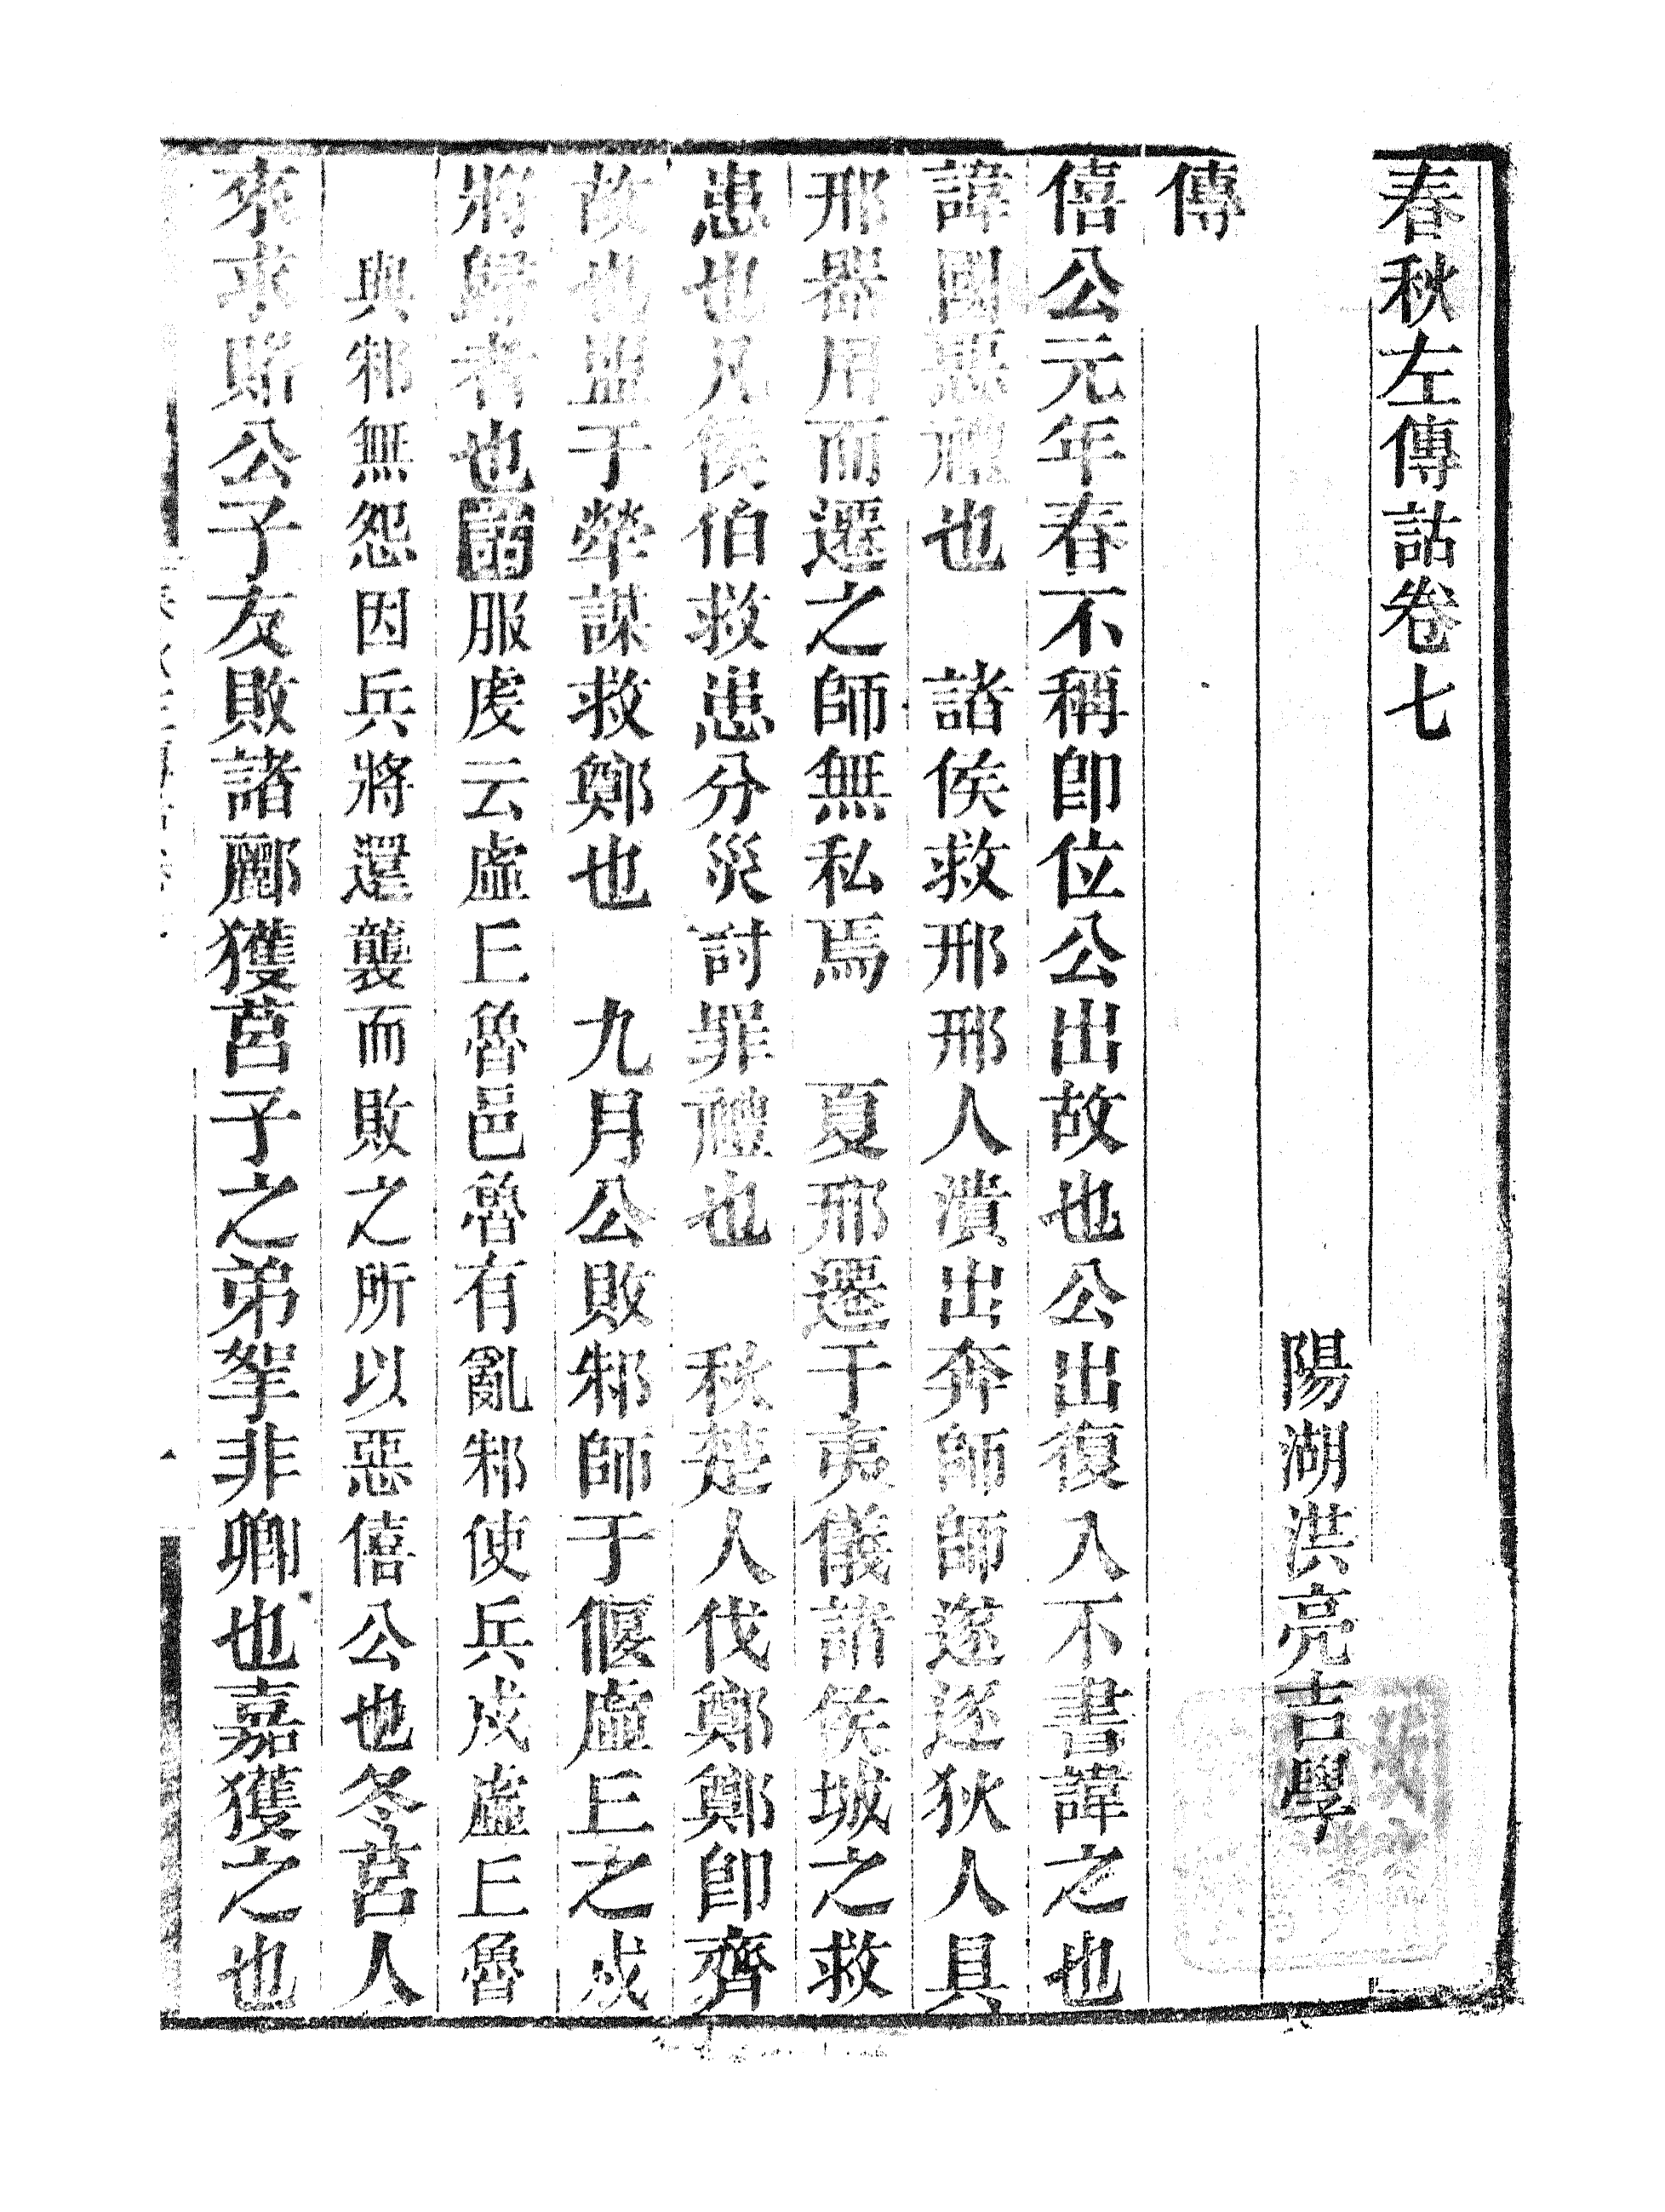 春秋左傳詁卷七
陽湖洪亮吉學
傳
僖公元年春不稱卽位公出故也公出復入不書諱之也
諱國惡禮也　諸侯救邢邢人潰出奔師師遂逐狄人具
邢器用而遷之師無私焉　夏邢遷于夷儀諸侯城之救
患也凡侯伯救患分災討罪禮也　秋楚人伐鄭鄭卽齊
故也盟于犖謀救鄭也　九月公敗邾師于偃虛丘之戍
將歸者也詁服虔云虛丘魯邑魯有亂邾使兵戍虛丘魯
與邾無怨因兵將還襲而敗之所以惡僖公也冬莒人
來求賂公子友敗諸酈獲莒子之弟挐非卿也嘉獲之也